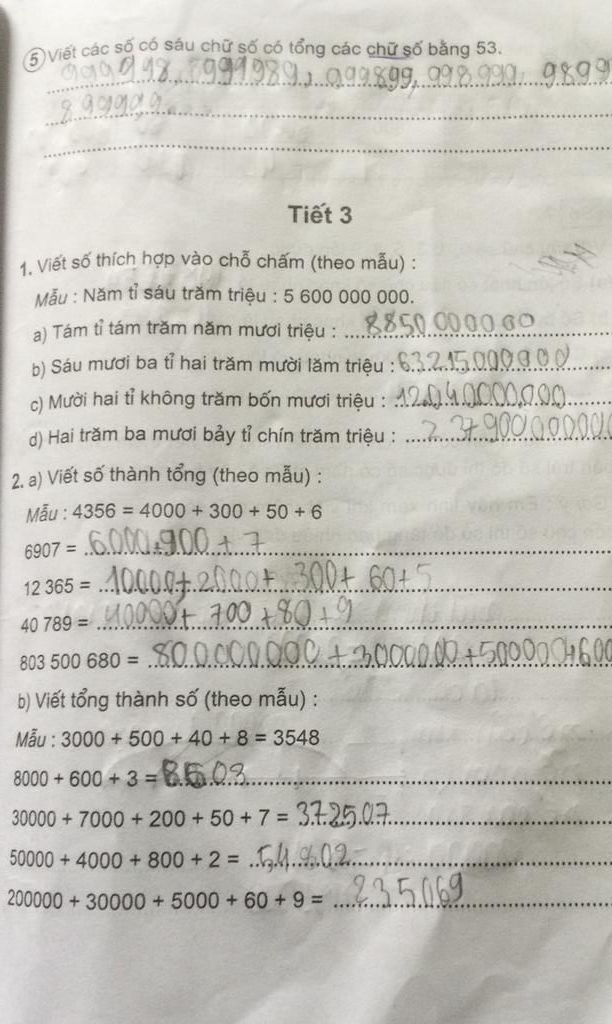 5 Viết các số có sáu chữ số có tổng các chữ số bằng 53.
999998, 999989, 999899, 998999, 9899
899999.
Tiết 3
1. Viết số thích hợp vào chỗ chấm (theo mẫu) :
Mẫu : Năm tỉ sáu trăm triệu : 5 600 000 000.
a) Tám tỉ tám trăm năm mươi triệu : 8850 000000
b) Sáu mươi ba tỉ hai trăm mười lăm triệu : 63215000000
c) Mười hai tỉ không trăm bốn mươi triệu : 12040000000
d) Hai trăm ba mươi bảy tỉ chín trăm triệu : 237900000000
2. a) Viết số thành tổng (theo mẫu) :
Mẫu : 4356 = 4000 + 300 + 50 + 6
6907 = 6000+900 + 7
12 365 = 10000+2000+ 300+ 60+5
40 789 = 40000+ 700 +80+9
803 500 680 = 800000000 +3000000+500000+600
b) Viết tổng thành số (theo mẫu) :
Mẫu : 3000 + 500 + 40 + 8 = 3548
8000 + 600 + 3 = 8603
30000 + 7000 + 200 + 50 + 7 = 372507
50000 + 4000 + 800 + 2 = 54802
200000 + 30000 + 5000 + 60 + 9 = 235069